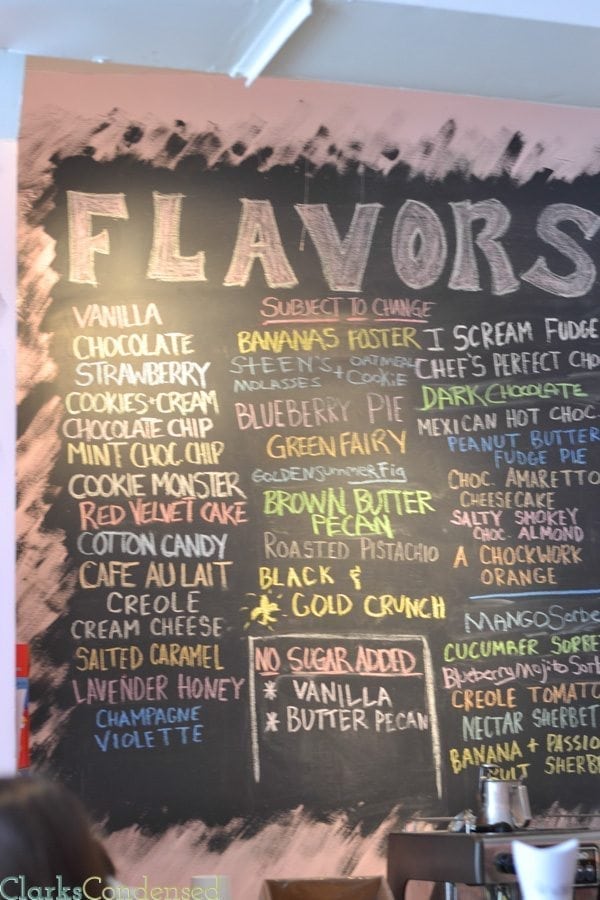 FLAVORS
VANILLA
CHOCOLATE
STRAWBERRY
COOKIES+CREAM
CHOCOLATE CHIP
MINT CHOC CHIP
COOKIE MONSTER
RED VELVET CAKE
COTTON CANDY
CAFE AU LAIT
CREOLE
CREAM CHEESE
SALTED CARAMEL
LAVENDER HONEY
CHAMPAGNE
VIOLETTE
SUBJECT TO CHANGE
BANANAS FOSTER
STEEN'S OATMEAL
MOLASSES + COOKIE
BLUEBERRY PIE
GREEN FAIRY
GOLDEN summer Fig
BROWN BUTTER
PECAN
ROASTED PISTACHIO
BLACK &
GOLD CRUNCH
NO SUGAR ADDED
* VANILLA
* BUTTER PECAN
I SCREAM FUDGE
CHEF'S PERFECT CHO
DARK CHOCOLATE
MEXICAN HOT CHOC.
PEANUT BUTTER
FUDGE PIE
CHOC. AMARETTO
CHEESECAKE
SALTY SMOKEY
CHOC. ALMOND
A CHOCKWORK
ORANGE
MANGO Sorbe
CUCUMBER SORBE
Blueberry Mojito Sorb
CREOLE TOMATO
NECTAR SHERBET
BANANA + PASSIO
SHERB
ClarksCondensed